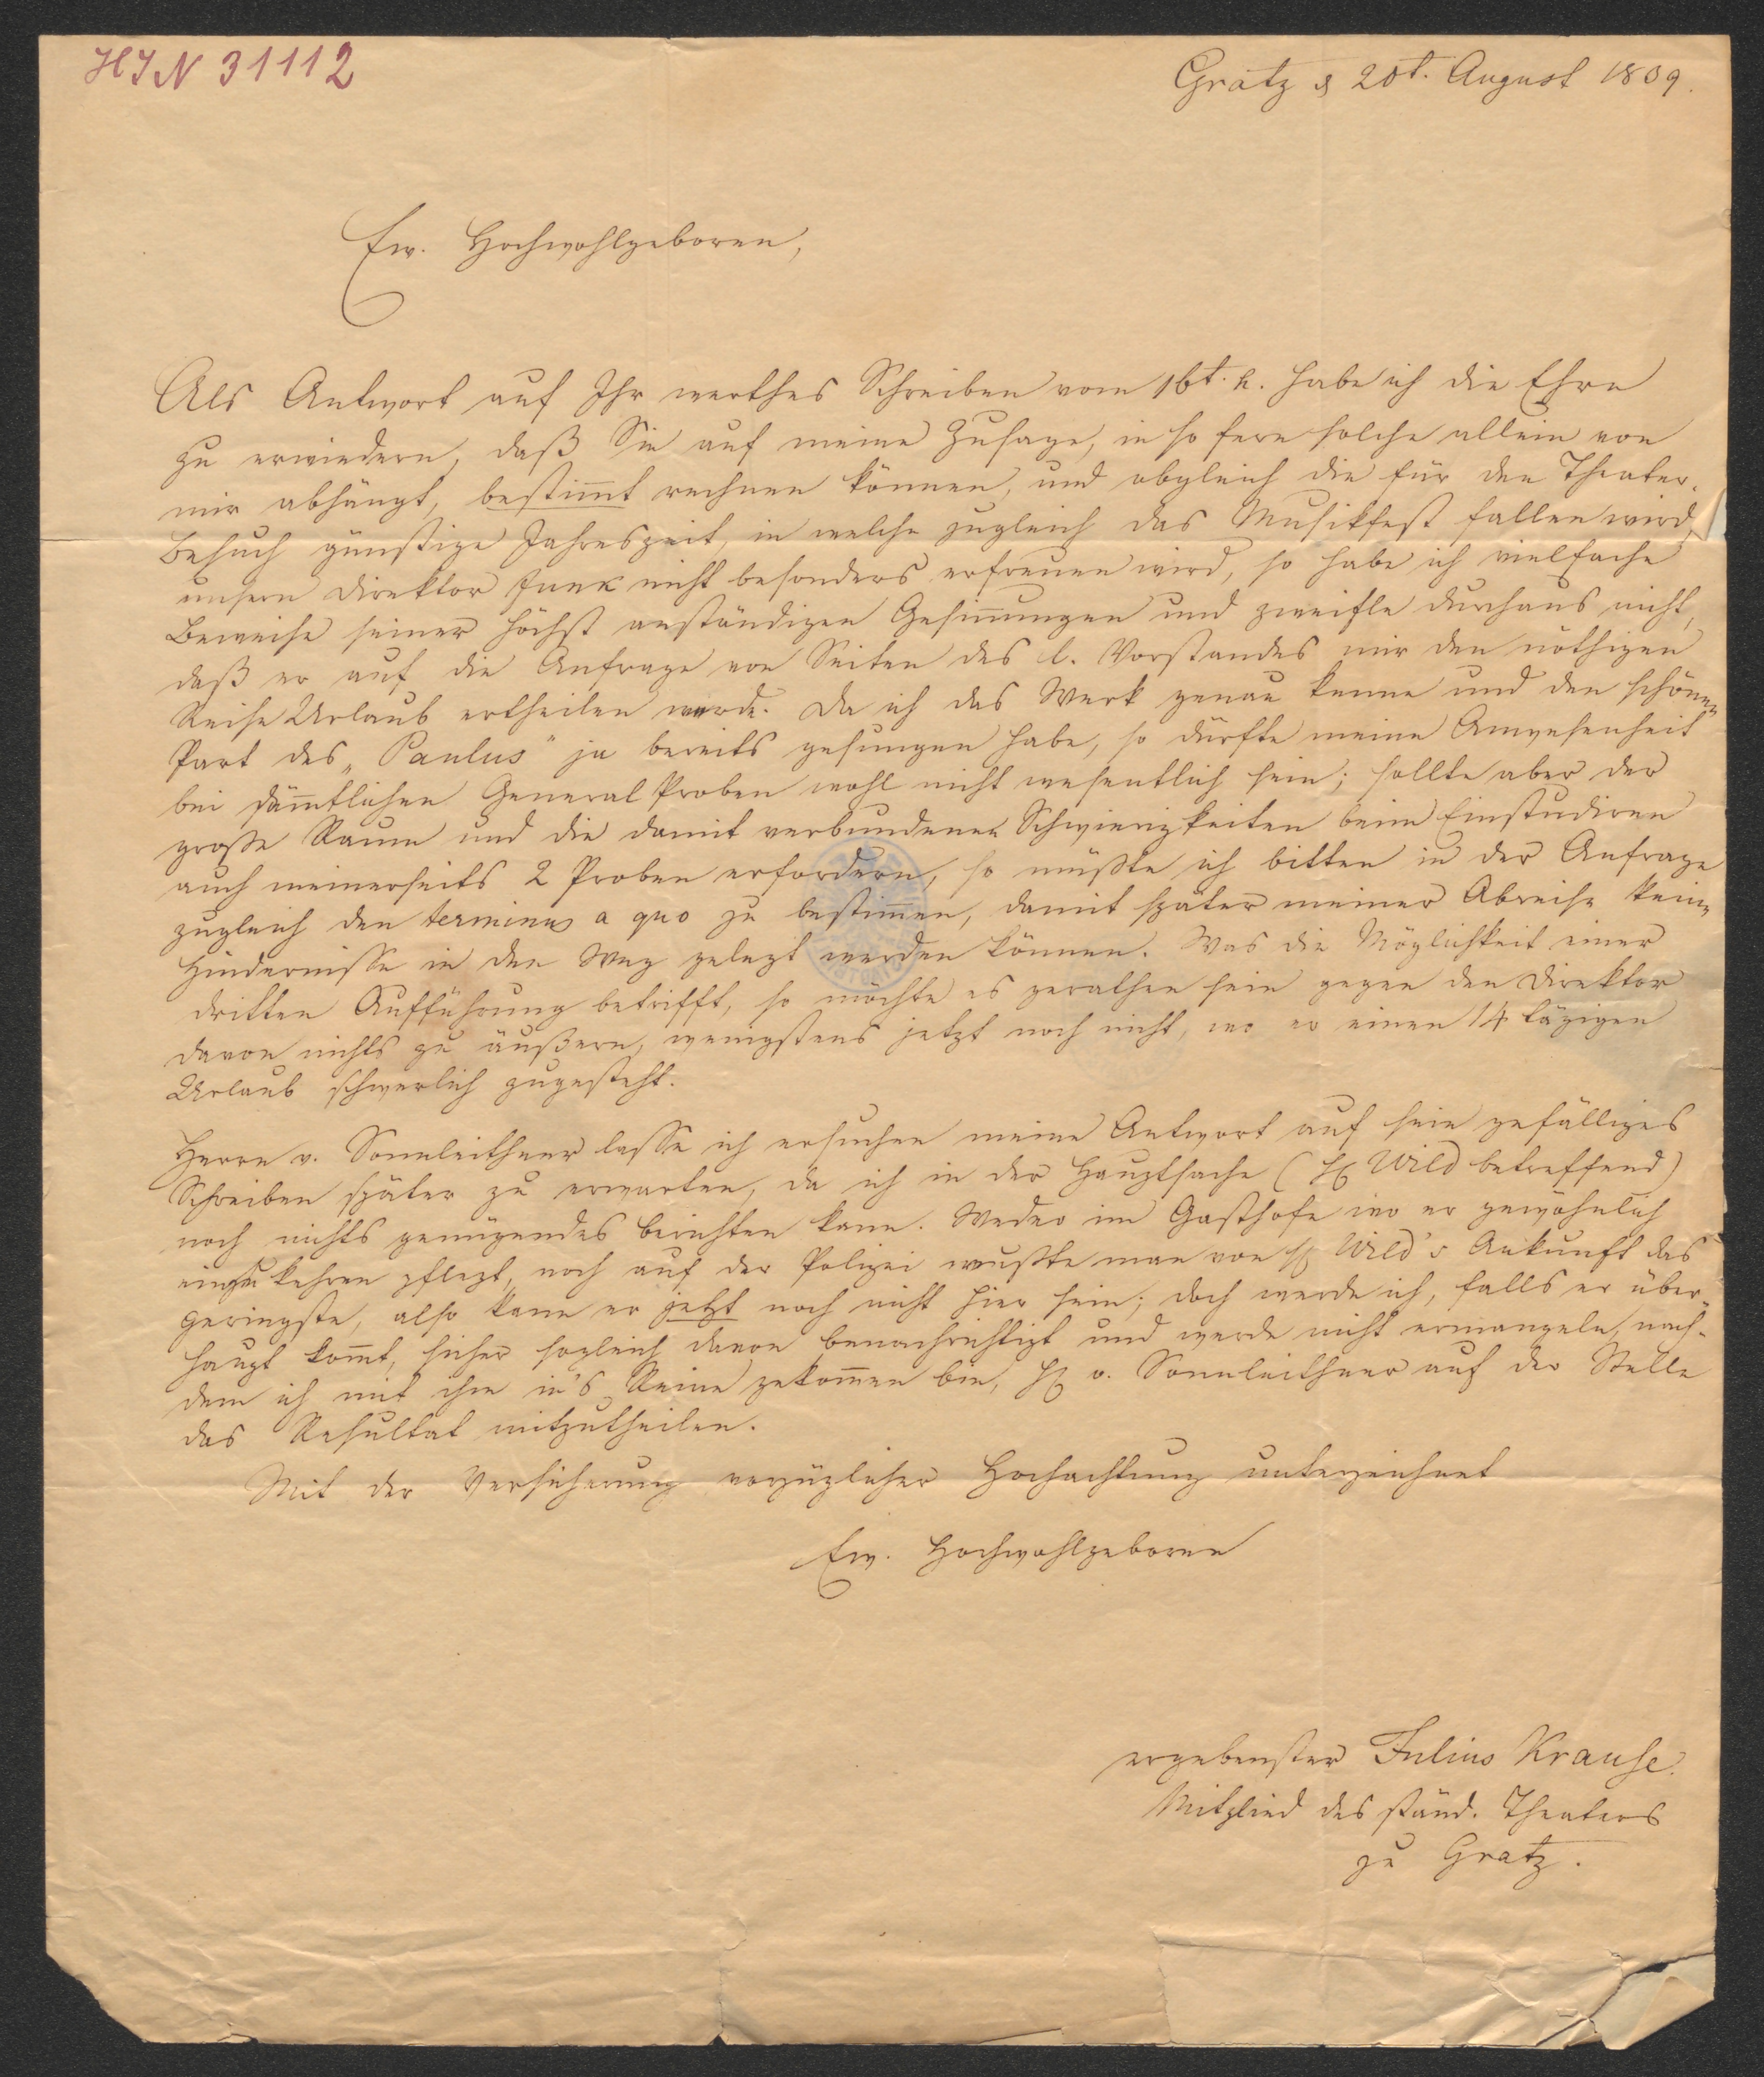 HIN 31112
Gratz d 20t. August 1839.
Ew. Hochwohlgeboren,
Als Antwort auf Ihr werthes Schreiben vom 16t. h. habe ich die Ehre
zu erwiedern, daß Sie auf meine Zusage, in so fern solche allein von
mir abhängt, bestim̄t rechnen können, und obgleich die für den Theater-
besuch günstige Jahreszeit, in welche zugleich das Musikfest fallen wird,
unsern Direktor Funk nicht besonders erfreuen wird, so habe ich vielfache
Beweise seiner höchst anständigen Gesin̄ungen und zweifle durchaus nicht,
daß er auf die Anfrage von Seiten des l. Vorstandes mir den nöthigen
Reise Urlaub ertheilen werde. Da ich das Werk genau kenne und den schönen
Part des „Paulus" ja bereits gesungen habe, so dürfte meine Anwesenheit
bei säm̄tlichen General Proben wohl nicht wesentlich sein; sollte aber der
große Raum und die damit verbundenen Schwierigkeiten beim Einstudiren
auch meinerseits 2 Proben erfordern, so müßte ich bitten in der Anfrage
zugleich den terminus a quo zu bestim̄en, damit später meiner Abreise keine
Hindernisse in den Weg gelegt werden können. Was die Möglichkeit einer
dritten Aufführung betrifft, so möchte es gerathen sein gegen den Direktor
davon nichts zu äußern, wenigstens jetzt noch nicht, wo er einen 14 tägigen
Urlaub schwerlich zugesteht.
Herrn v. Sonnleithner lasse ich ersuchen meine Antwort auf sein gefälliges
Schreiben später zu erwarten, da ich in der Hauptsache (H Wild betreffend)
noch nichts genügendes berichten kann. Weder im Gasthofe wo er gewöhnlich
einzukehren pflegt, noch auf der Polizei wußte man von H Wild's Ankunft das
geringste, also kann er jetzt noch nicht hier sein; doch werde ich, falls er über-
haupt kom̄t, sicher sogleich davon benachrichtigt und werde nicht ermangeln, nach-
dem ich mit ihm in's Reine gekom̄en bin, H v. Sonnleithner auf der Stelle
das Resultat mitzutheilen.
Mit der Versicherung vorzüglicher Hochachtung unterzeichnet
Ew. Hochwohlgeboren
ergebenster Julius Krause.
Mitglied des ständ. Theaters
zu Gratz.